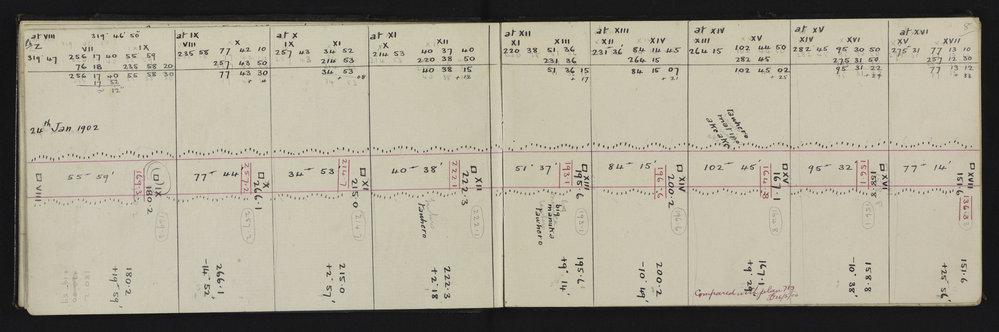 at VIII 319° 46' 50"
Z VII IX
319 47 256 17 40 55 59
76 18 235 58 20
256 17 40 55 58 30
17 52
24th Jan 1902
□ VII
55 - 59'
□ IX
180.2
180.2
+19° 59'
at IX
VIII X
235 58 77 42 10
257 43 50
77 43 30
77 - 44
□ X
266.1
257.2
266.1
-14° 52'
at X
IX XI
257 43 34 52
214 53
34 53
+ 08
34 - 53
□ XI
215.0
214.7
215.0
+2° 57'
at XI
X XII
214 53 40 37 40
220 38 50
40 38 15
+ 12
40 - 38'
□ XII
222.3
222.1
Tawhero
222.3
+2° 18'
at XII
XI XIII
220 38 51 36
231 36
51 36 15
+ 17
51 - 37'
□ XIII
195.6
193.1
big
manuka
Tawhero
195.6
+9° 14'
at XIII
XII XIV
231° 36' 84 14 45
264 15
84 15 07
+ 21
84 - 15'
□ XIV
200.2
196.6
200.2
-10° 49'
at XIV
XIII XV
264 15 102 44 50
282 45
102 45 02
+ 25
Tawhero
102 - 45'
□ XV
167.1
164.8
167.1
+9° 29'
at XV
XIV XVI
282 45 95 30 50
275 31 50
95 31 22
+ 29
95 - 32
□ XVI
158.8
156.1
158.8
-10° 38'
at XVI
XV XVII
275 31 77 13 10
257 12 30
77 13 12
+ 33
77 - 14'
□ XVII
151.6
136.3
151.6
+25° 56'
Compared with plan
8